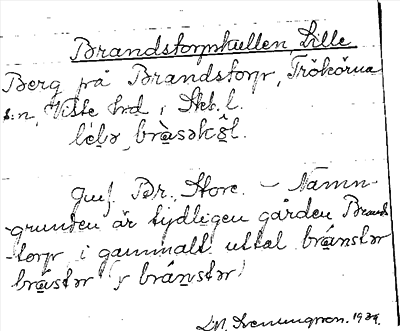 Brandstorpskullen, Lille
Berg på Brandstorp, Trökörna
s:n, Viste hd, Skb. l.
brȧsəkōl.
Jmf. Br. Store. – Namn-
grunden är tydligen gården Brands-
torp i gammalt uttal bránstər
brástər (bránstər)
1929.